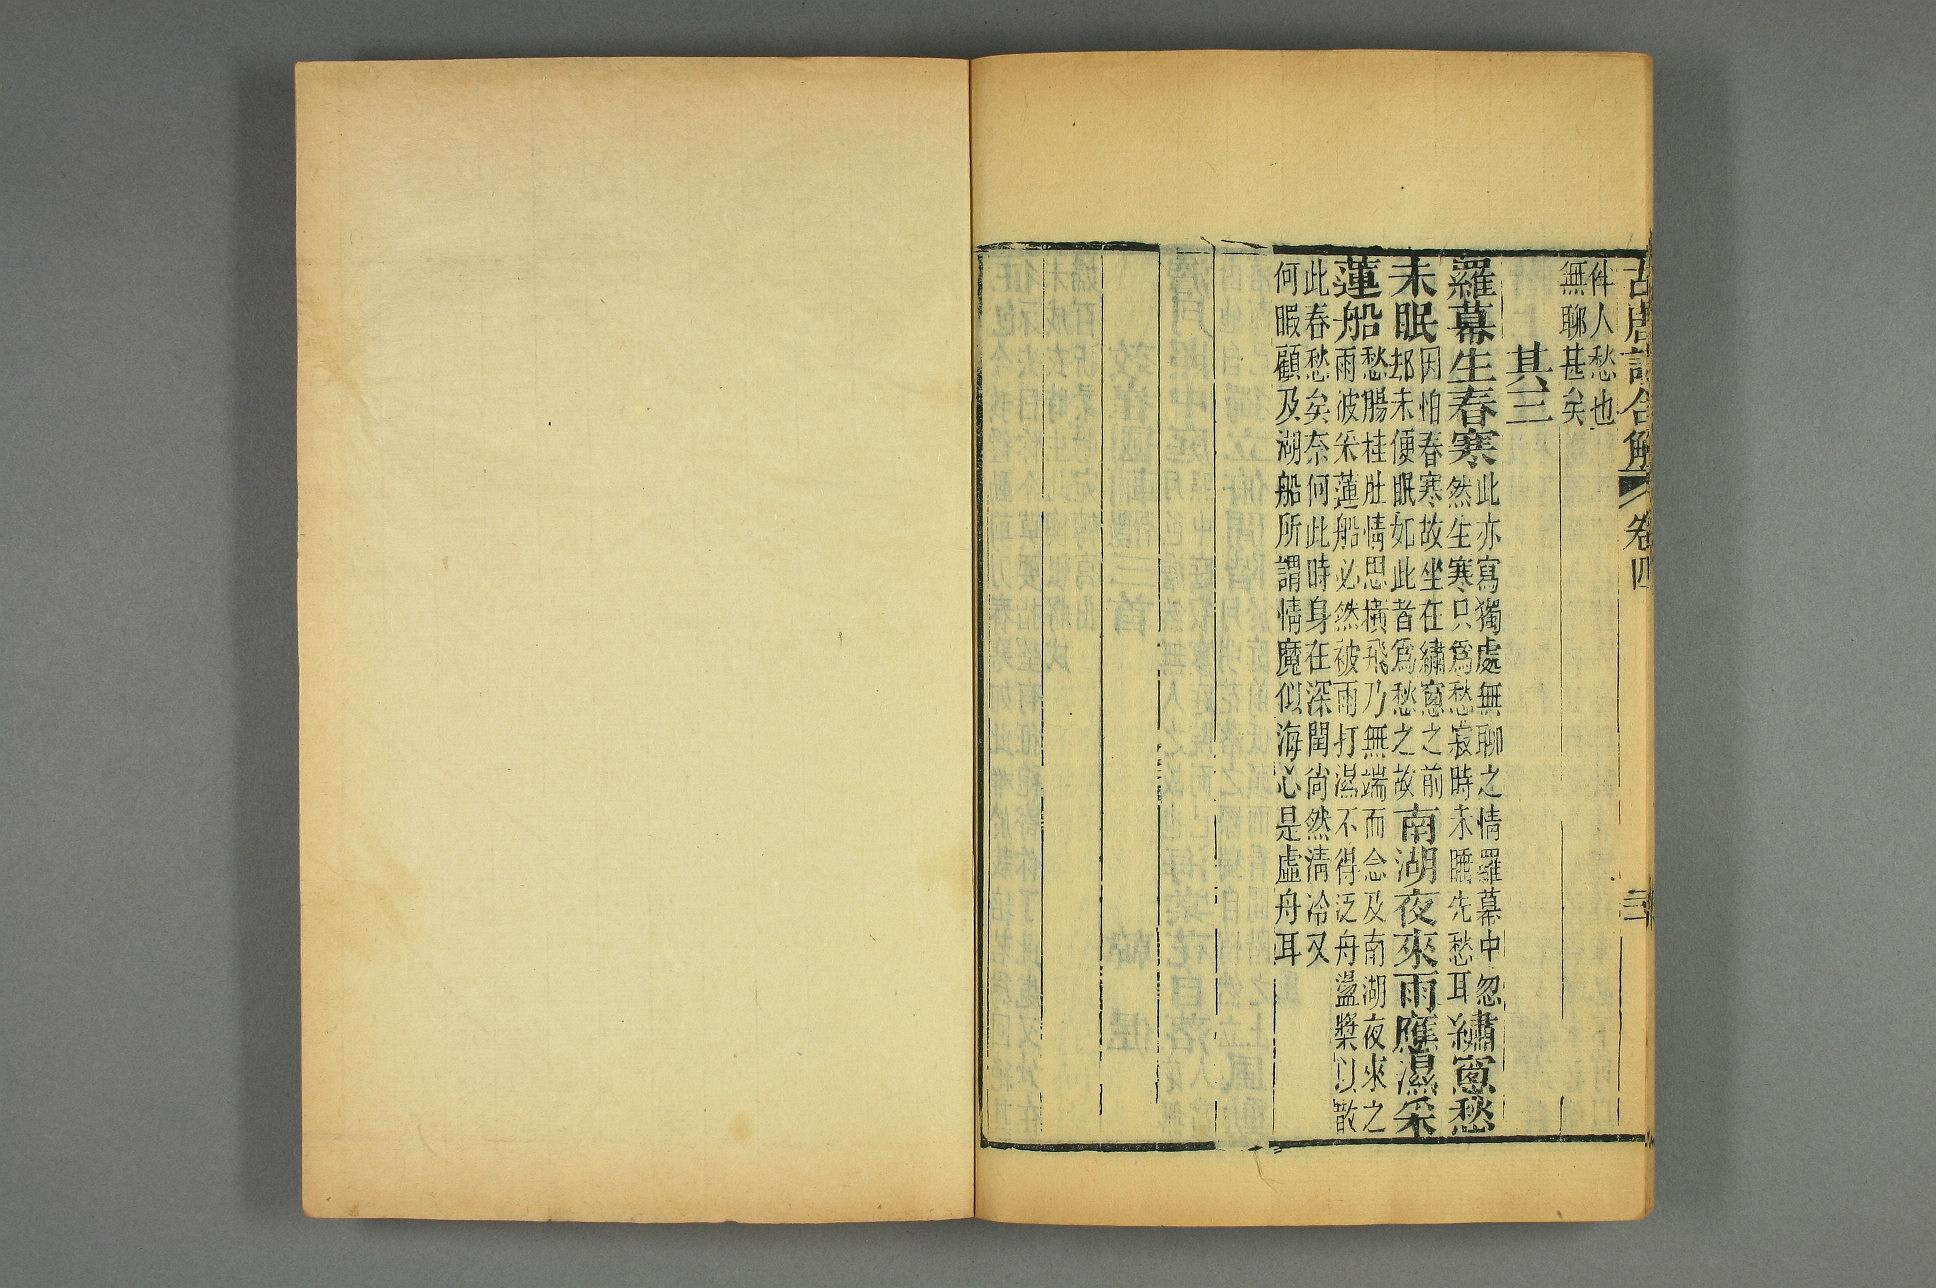 古唐詩合解 卷四 三十
件人愁也
無聊甚矣
其三
羅幕生春寒
此亦寫獨處無聊之情羅幕中忽
然生寒只爲愁寂時未睡先愁耳
繡窻愁
未眠
因怕春寒故坐在繡窻之前
却未便眠如此者爲愁之故
南湖夜來雨應濕采
蓮船
愁腸桂肚情思橫飛乃無端而念及南湖夜來之
雨彼采蓮船必然被雨打濕不得泛舟盪槳以散
此春愁矣奈何此時身在深閨尚然淸冷又
何暇顧及湖船所謂情魔似海心是虛舟耳